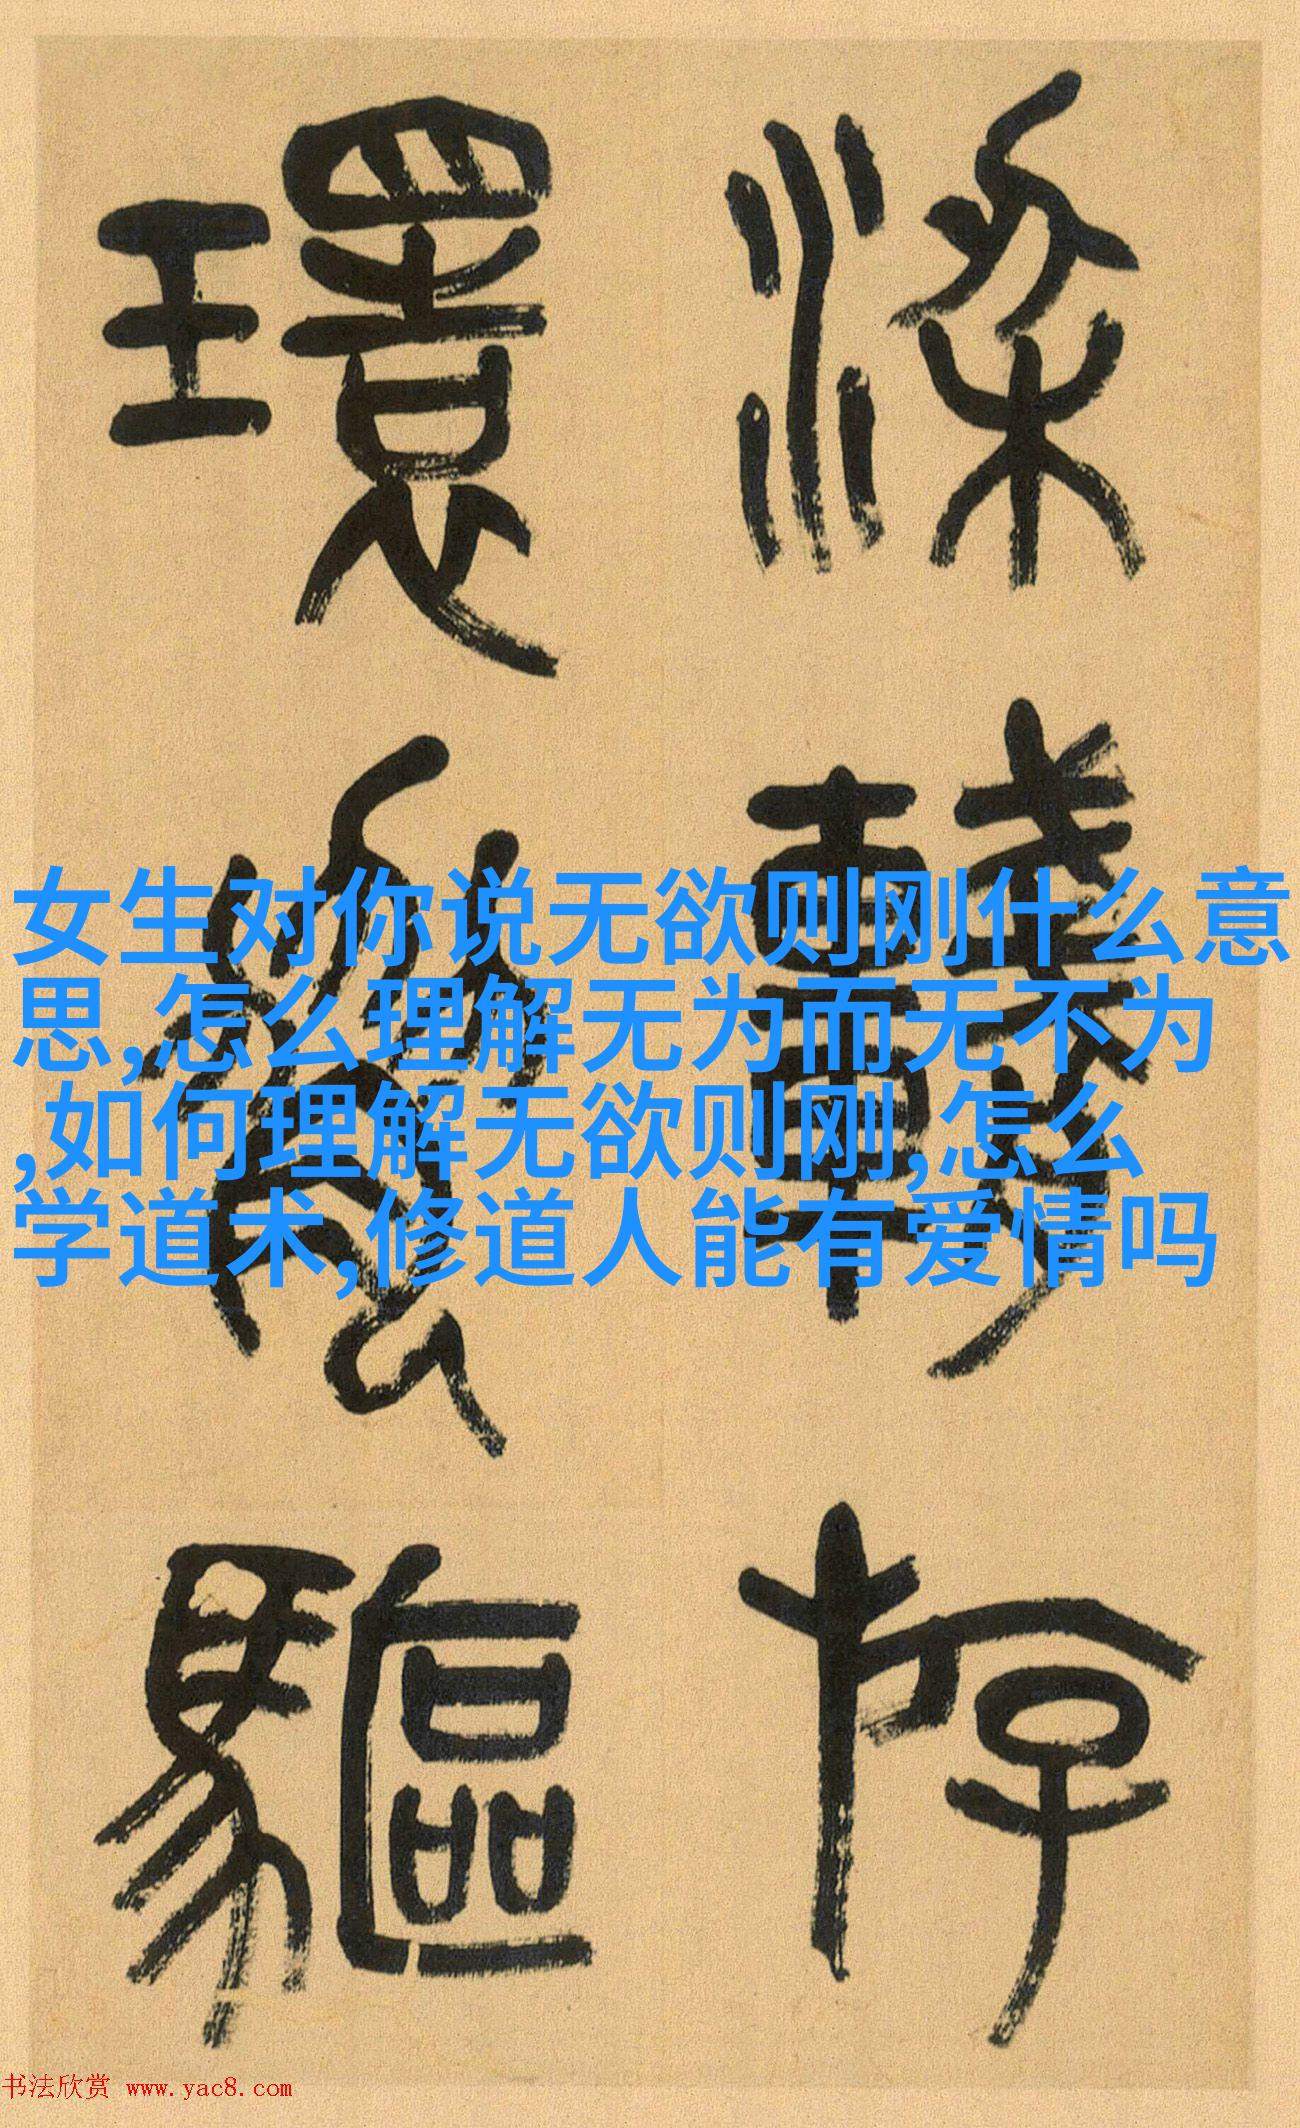 存
環
驅
女生对你说无欲则刚什么意
思,怎么理解无为而无不为
,如何理解无欲则刚,怎么
学道术,修道人能有爱情吗
书法欣赏 www.yac8.com